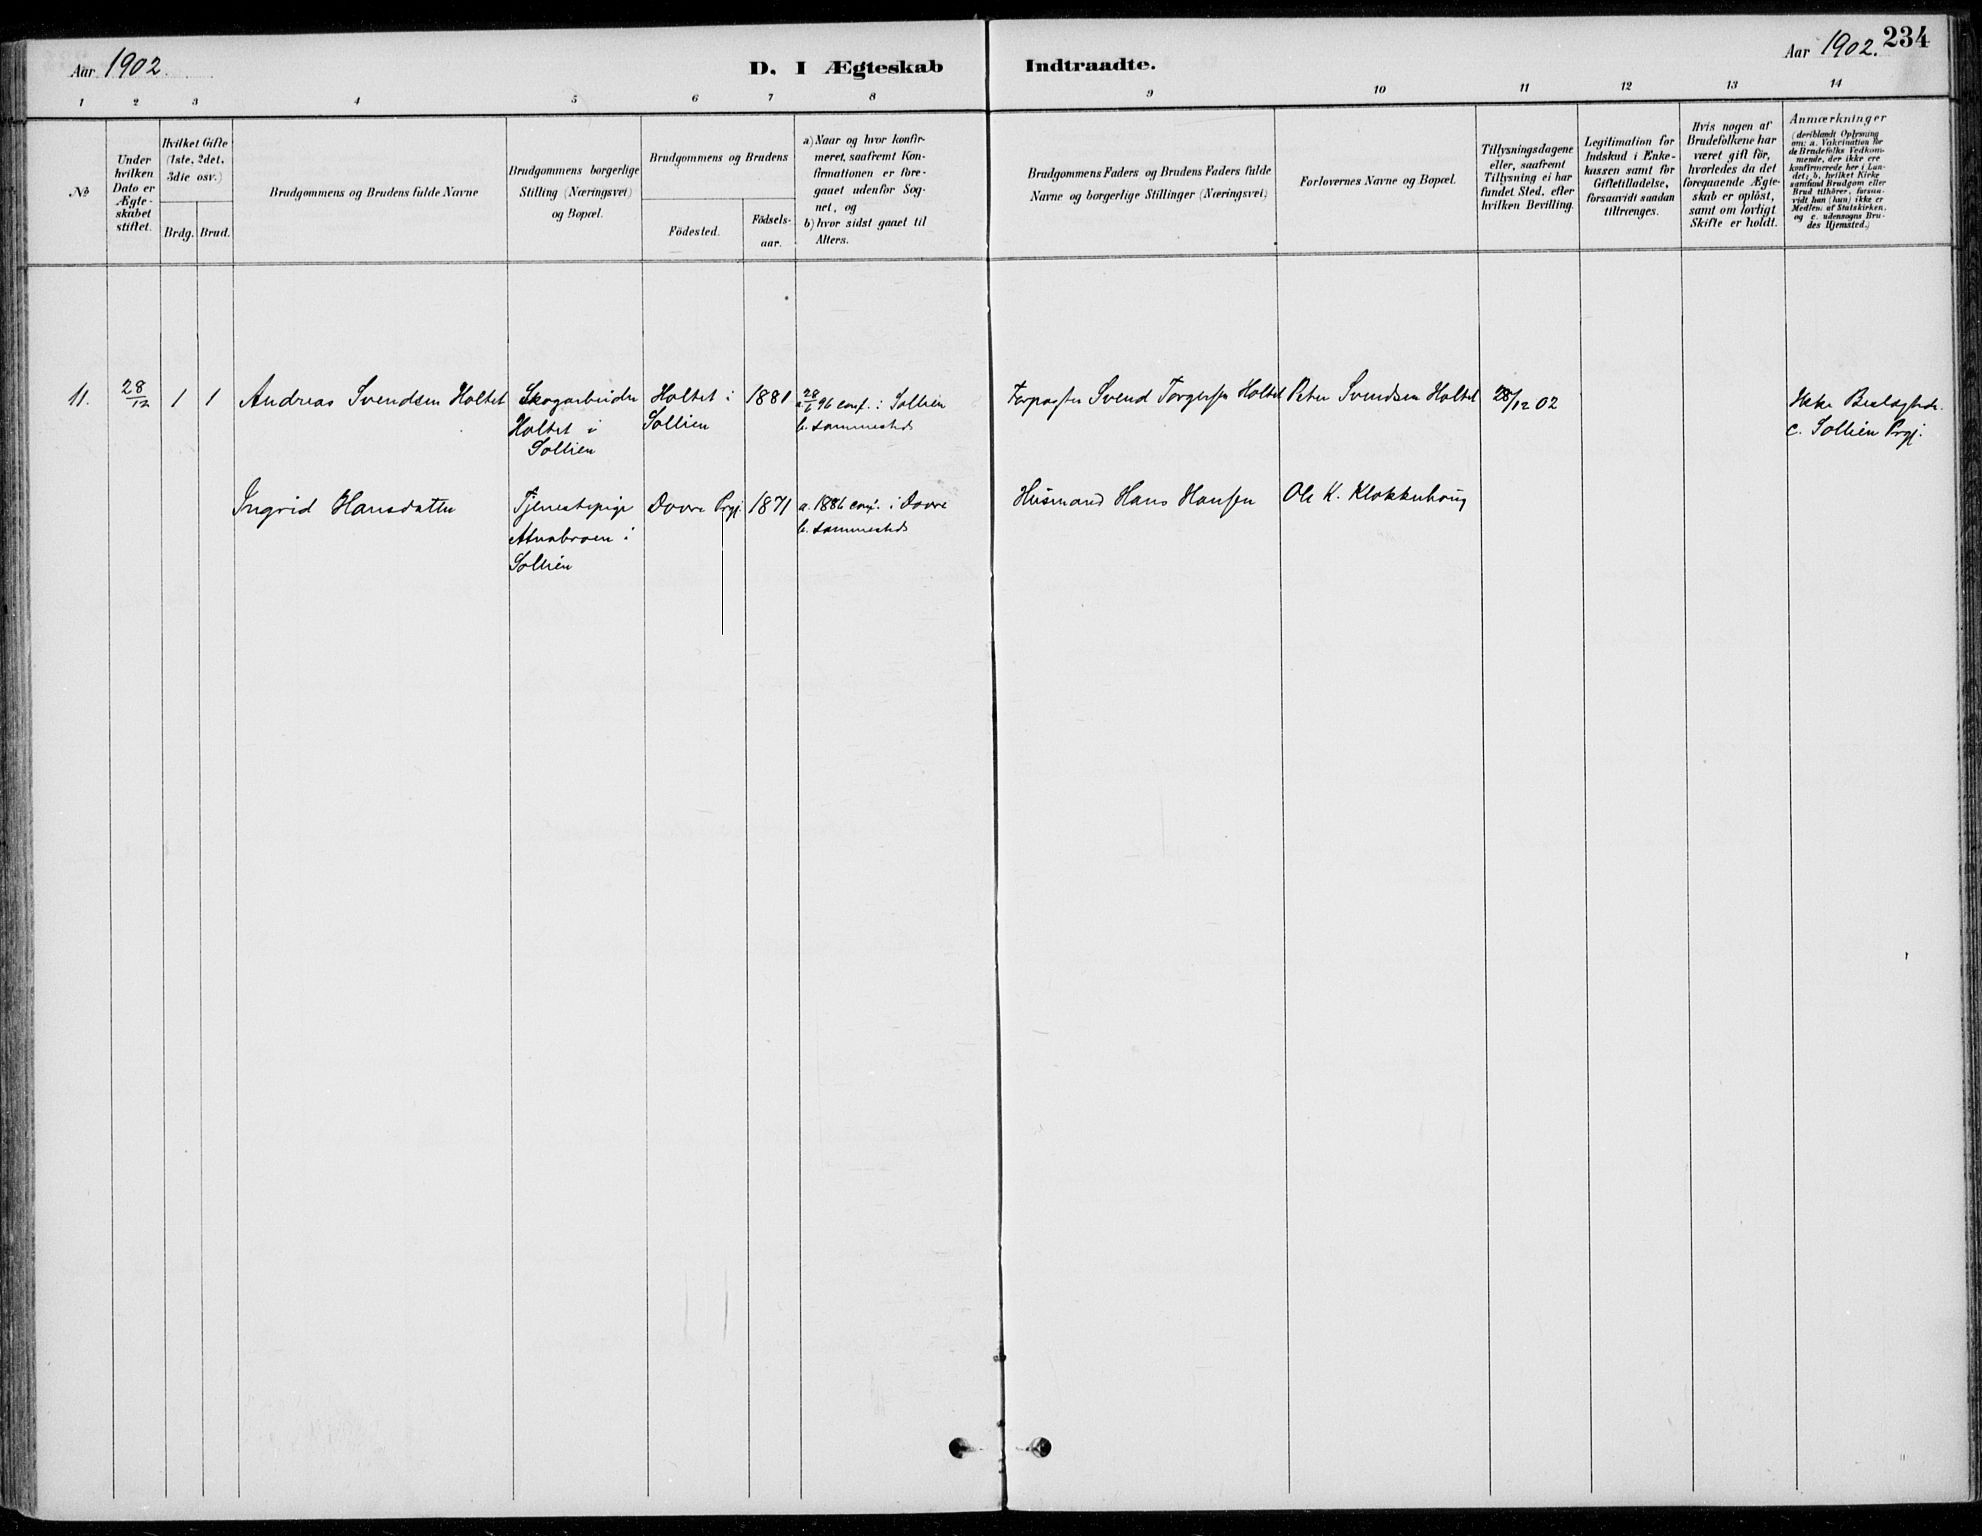 Aar 1902.
D. I Ægteskab
Indtraadte.
Aar 1902.
234
1 2 3 4 5 6 7 8 9 10 11 12 13 14
№
Under
hvilken
Dato er
Ægte-
skabet
stiftet.
Hvilket Gifte
(1ste, 2det,
3die osv.)
Brdg. Brud.
Brudgommens og Brudens fulde Navne
Brudgommens borgerlige
Stilling (Næringsvei)
og Bopæl.
Brudgommens og Brudens
Födested.
Födsels-
aar.
a) Naar og hvor konfir-
meret, saafremt Kon-
firmationen er fore-
gaaet udenfor Sog-
net, og
b) hvor sidst gaaet til
Alters.
Brudgommens Faders og Brudens Faders fulde
Navne og borgerlige Stillinger (Næringsvei)
Forlovernes Navne og Bopæl.
Tillysningsdagene
eller, saafremt
Tillysning ei har
fundet Sted, efter
hvilken Bevilling.
Legitimation for
Indskud i Enke-
kassen samt for
Giftetilladelse,
forsaavidt saadan
tiltrænges.
Hvis nogen af
Brudefolkene har
været gift för,
hvorledes da det
foregaaende Ægte-
skab er oplöst,
samt om lovligt
Skifte er holdt.
Anmærkninger
(deriblandt Oplysning
om: a. Vakcination for
de Brudefolks Vedkom-
mende, der ikke ere
konfirmerede her i Lan-
det; b. hvilket Kirke
samfund Brudgom eller
Brud tilhörer, forsaa-
vidt han (hun) ikke er
Medlem af Statskirken,
og c. udensogns Bru-
des Hjemsted.)
11. 28/12 1 1 Andreas Svendsen Holtet
Skogarbeider
Holtet i
Sollien
Holtet i
Sollien
1881
a. 28/6 96 conf. i Sollien
b. sammesteds
Forpagter Svend Torgersen Holtet
Peter Svendsen Holtet
28/12 02
Ikke Beslægtede.
c. Sollien Prgj.
Ingrid Hansdatter
Tjenestepige
Atnabroen i
Sollien
Dovre Prgj.
1871
a. 1886 conf. i Dovre
b. sammesteds
Husmand Hans Hansen
Ole K. Klokkerhoug